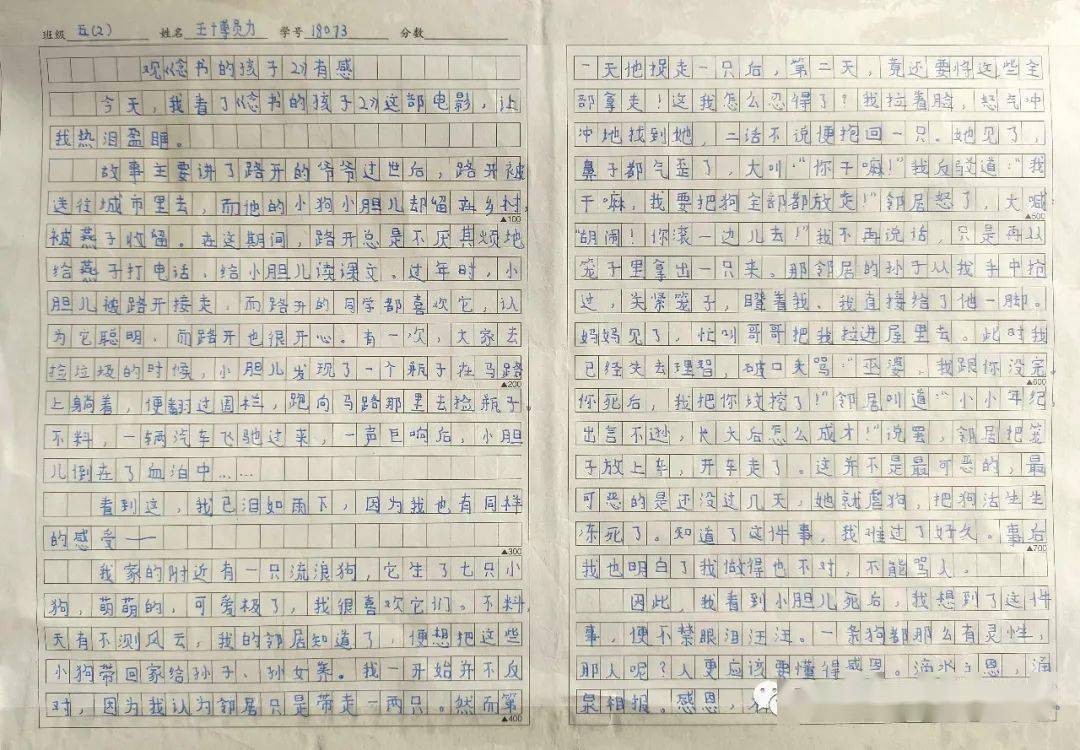 班级 五(2) 姓名 王博勋 学号 18073 分数
观《念书的孩子2》有感
今天，我看了《念书的孩子2》这部电影，让
我热泪盈眶。
故事主要讲了路开的爷爷过世后，路开被
送往城市里去，而他的小狗小胆儿却留在乡村，
被燕子收留。在这期间，路开总是不厌其烦地
给燕子打电话，给小胆儿读课文。过年时，小
胆儿被路开接走，而路开的同学都喜欢它，认
为它聪明，而路开也很开心。有一次，大家去
捡垃圾的时候，小胆儿发现了一个瓶子在马路
▲100
▲200
上躺着，便翻过围栏，跑向马路那里去捡瓶子。
不料，一辆汽车飞驰过来，一声巨响后，小胆
儿倒在了血泊中……
看到这，我已泪如雨下，因为我也有同样
的感受——
▲300
我家的附近有一只流浪狗，它生了七只小
狗，萌萌的，可爱极了，我很喜欢它们。不料，
天有不测风云，我的邻居知道了，便想把这些
小狗带回家给孙子、孙女养。我一开始并不反
对，因为我认为邻居只是带走一两只。然而第
▲400
一天他捉走一只后，第二天，竟还要将这些全
部拿走！这我怎么忍得了？我拉着脸，怒气冲
冲地找到她，二话不说便抱回一只。她见了，
鼻子都气歪了，大叫：“你干嘛！”我反驳道：“我
干嘛，我要把狗全部都放走！”邻居怒了，大喊
▲500
“胡闹！你滚一边儿去！”我不再说话，只是再从
笼子里拿出一只来。那邻居的孙子从我手中抢
过，关紧笼子，瞪着我。我直接给了他一脚。
妈妈见了，忙叫哥哥把我拉进屋里去。此时我
已经失去理智，破口大骂：“巫婆，我跟你没完。
▲600
你死后，我把你坟挖了！”邻居叫道：“小小年纪
出言不逊，长大后怎么成才！”说罢，邻居把笼
子放上车，开车走了。这并不是最可恶的，最
可恶的是还没过几天，她就虐狗，把狗活生生
冻死了。知道了这件事，我难过了好久。事后
▲700
我也明白了我做得也不对，不能骂人。
因此，我看到小胆儿死后，我想到了这件
事，便不禁眼泪汪汪。一条狗都那么有灵性，
那人呢？人更应该要懂得感恩。滴水之恩，涌
泉相报。感恩，